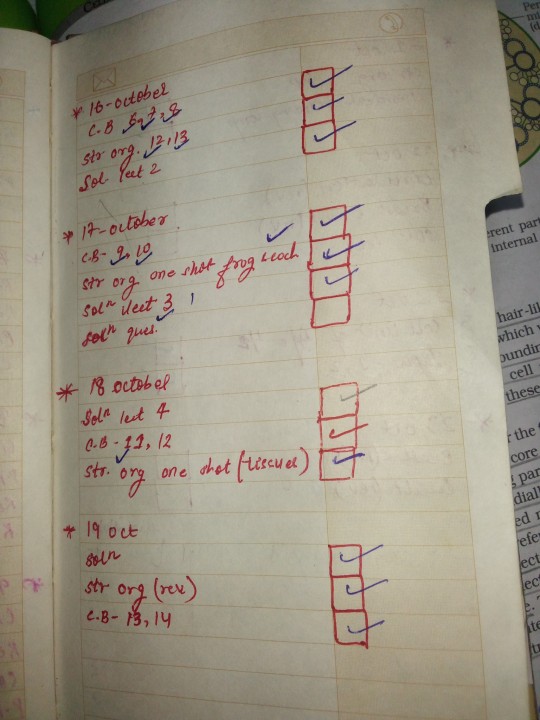 * 16-october
C.B 6, 7, 8
Str org. 12, 13
Sol. lect 2
* 17-october
C.B- 9, 10
Str org one shot frog &coch
Solⁿ lect 3
Solⁿ ques.
* 18 october
Solⁿ lect 4
C.B - 11, 12
Str. org one shot (tissues)
* 19 oct
Solⁿ
Str org (rev)
C.B- 13, 14
Per
(d
erent part
internal
hair-li
which
cell
these
core